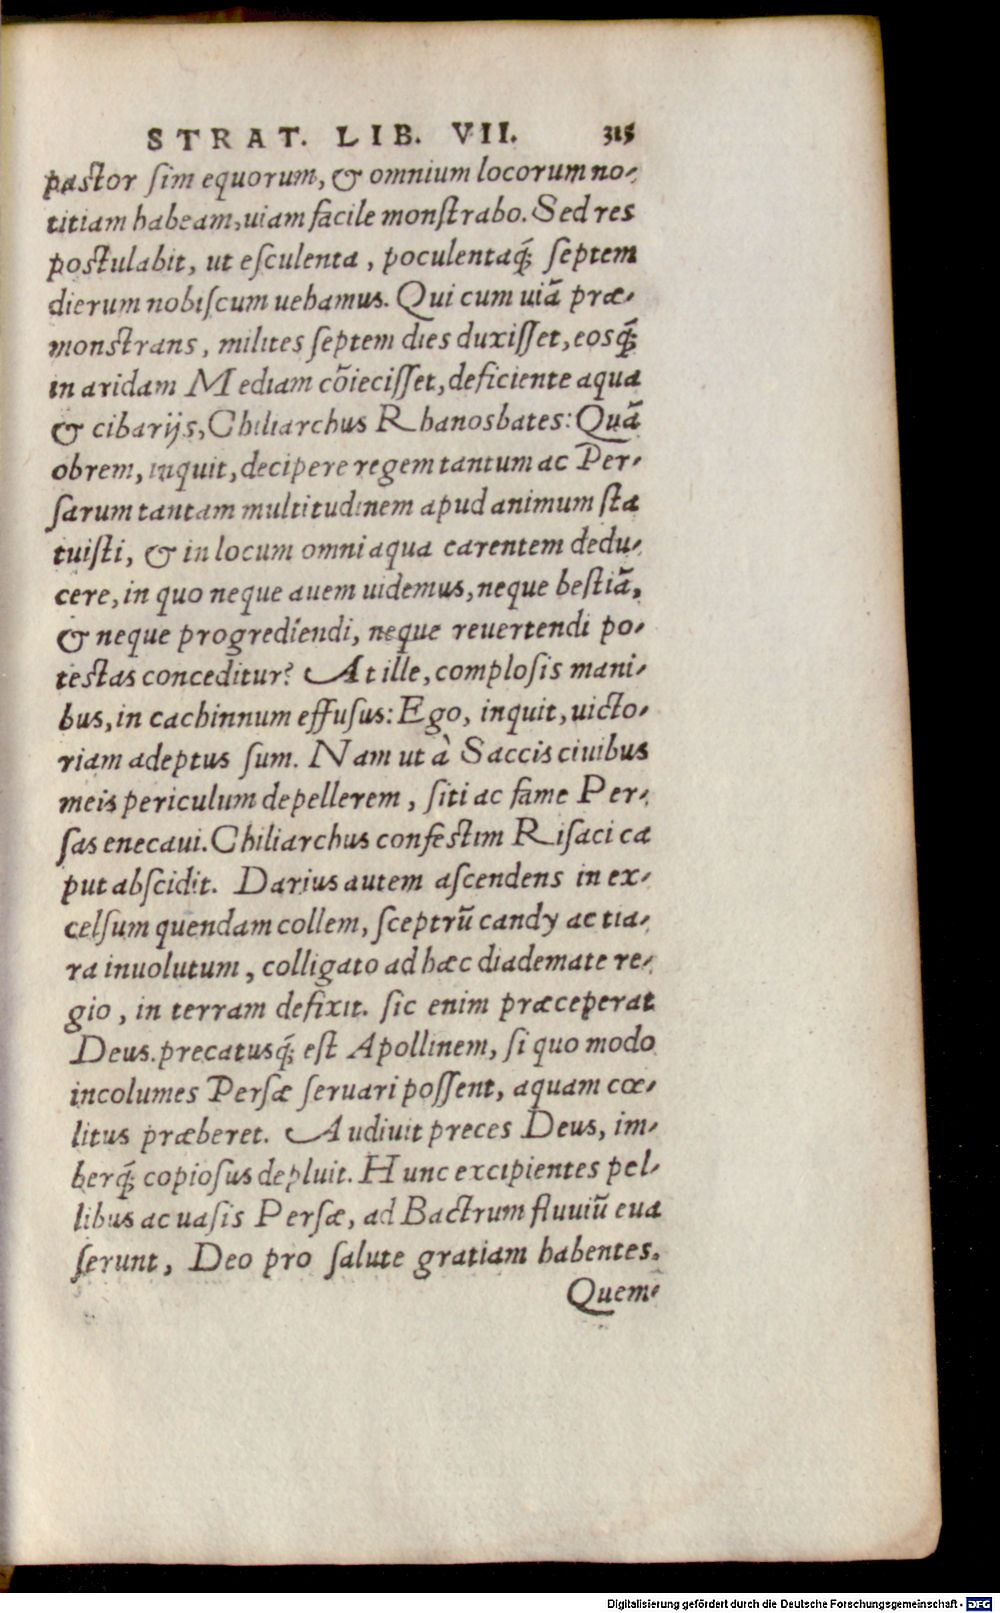 STRAT. LIB. VII. 315
pastor sim equorum, & omnium locorum no-
titiam habeam, uiam facile monstrabo. Sed res
postulabit, ut esculenta, poculentaq́; septem
dierum nobiscum uehamus. Qui cum uiã præ-
monstrans, milites septem dies duxisset, eosq́;
in aridam Mediam cõiecisset, deficiente aqua
& cibarijs, Chiliarchus Rhanosbates: Quã
obrem, inquit, decipere regem tantum ac Per-
sarum tantam multitudinem apud animum sta
tuisti, & in locum omni aqua carentem dedu-
cere, in quo neque auem uidemus, neque bestiã,
& neque progrediendi, neque reuertendi po-
testas conceditur? At ille, complosis mani-
bus, in cachinnum effusus: Ego, inquit, uicto-
riam adeptus sum. Nam ut à Saccis ciuibus
meis periculum depellerem, siti ac fame Per-
sas enecaui. Chiliarchus confestim Risaci ca
put abscidit. Darius autem ascendens in ex-
celsum quendam collem, sceptrũ candy ac tia-
ra inuolutum, colligato ad hæc diademate re-
gio, in terram defixit. sic enim præceperat
Deus. precatusq́; est Apollinem, si quo modo
incolumes Persæ seruari possent, aquam cœ-
litus præberet. Audiuit preces Deus, im-
berq́; copiosus depluit. Hunc excipientes pel-
libus ac uasis Persæ, ad Bactrum fluuiũ eua
serunt, Deo pro salute gratiam habentes.
Quem-
Digitalisierung gefördert durch die Deutsche Forschungsgemeinschaft - DFG